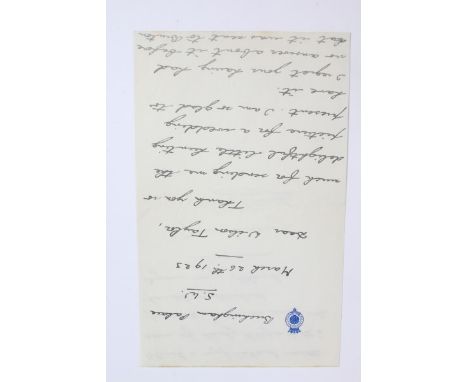 Buckingham Palace
S.W.
March 26th 1923
Dear Wilson Taylor,
Thank you so
much for sending me the
delightful little hunting
picture for a wedding
present. I am so glad to
have it.
I regret your having had
no answer about it before
but it was sent to